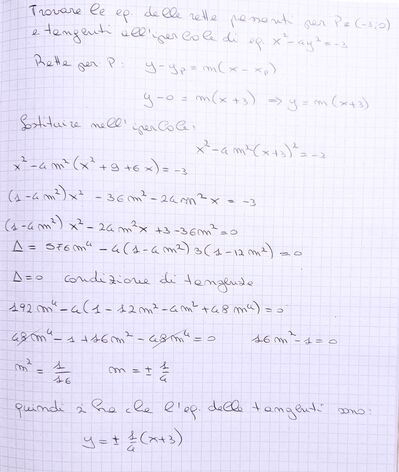 Trovare le eq. delle rette passanti per P≡(-3,0)
e tangenti all'iperbole di eq. x²-4y²=-3
Rette per P: y-yₚ=m(x-xₚ)
y-0=m(x+3) ⇒ y=m(x+3)
Sostituire nell'iperbole:
x²-4m²(x+3)²=-3
x²-4m²(x²+9+6x)=-3
(1-4m²)x²-36m²-24m²x=-3
(1-4m²)x²-24m²x+3-36m²=0
Δ=576m⁴-4(1-4m²)3(1-12m²)=0
Δ=0 condizione di tangenza
192m⁴-4(1-12m²-4m²+48m⁴)=0
48m⁴-1+16m²-48m⁴=0 16m²-1=0
m²=1/16 m=±1/4
quindi si ha che l'eq. delle tangenti sono:
y=±1/4(x+3)